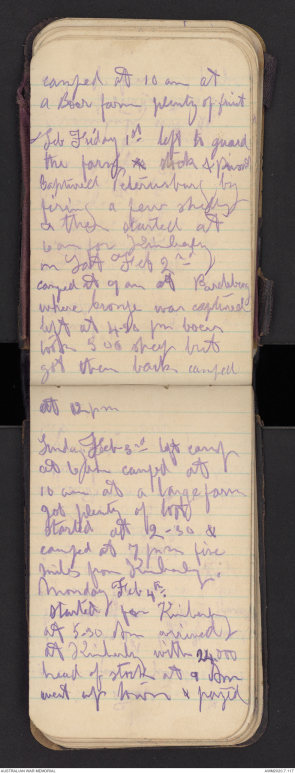 camped at 10 am at
a Boer farm plenty of fruit
Feb Friday 1st left to guard
the farm, stock &
Captured Petersburg by
firing a few shells
& then started at
6 am for Kimberley
on Sat Feb 2nd
camped at 9 am at Pardeberg
where Cronje was captured
left at 4-30 pm boers
took 500 sheep but
got them back camped
at 12 pm
Sunday Feb 3rd left camp
at 6 am camped at
10 am at a large farm
got plenty of loot
Started at 2-30 &
camped at 7 pm five
miles from Kimberley.
Monday Feb 4th.
Started for Kimberley
at 5-30 am arrived
at Kimberley with 24,000
head of stock at 9 am
went up town &
AUSTRALIAN WAR MEMORIAL